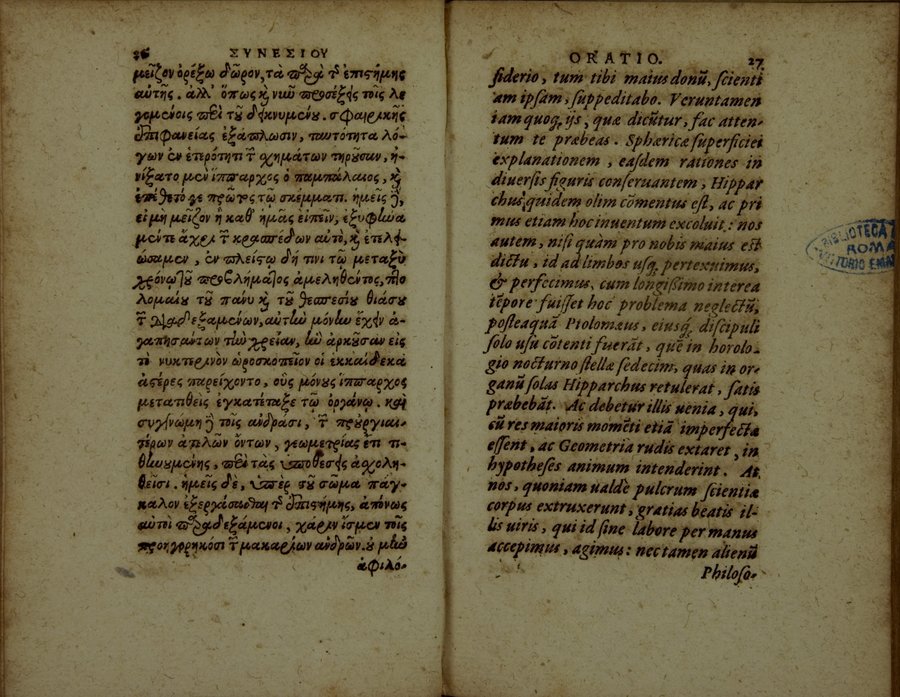 26 ΣΥΝΕΣΙΟΥ
μεῖζον ὀρέξω δῶρον, τὰ παρὰ τ ἐπιστήμης
αὐτῆς. ἀλλ' ὅπως κ νιῦ προσέξῃς τοῖς λε
γομένοις περὶ τοῦ δεικνυμένου. σφαιρικῆς
ἐπιφανείας ἐξάπλωσιν, ταυτότητα λό-
γων ἐν ἑτερότητι τ χημάτων τηροῦσαν, ᾐ-
νίξατο μὲν ἵππαρχος ὁ παμπάλαιος, κ
ἐπέθετό γε πρῶτος τῷ σκέμματι. ἡμεῖς δ,
εἰ μὴ μεῖζον ἢ καθ' ἡμᾶς εἰπεῖν, ἐξυφήνα
μέν τε ἄχρι τ κρασπέδων αὐτὸ, κ ἐτελει-
ώσαμεν, ἐν πλείστῳ δή τινι τῷ μεταξὺ
χρόνῳ τοῦ προβλήματος ἀμεληθέντος, πτο
λομαίου τοῦ πάνυ κ τοῦ θεσπεσίου θιάσου
τ διαδεξαμένων, αὐτὴν μόνην ἔχειν ἀ-
γαπησάντων τὴν χρείαν, ἣν ἀρκοῦσαν εἰς
τὸ νυκτερινὸν ὡροσκοπεῖον οἱ ἑκκαίδεκα
ἀστέρες παρείχοντο, οὓς μόνους ἵππαρχος
μετατιθεὶς ἐγκατέταξε τῷ ὀργάνῳ. καὶ
συγγνώμη δ τοῖς ἀνδράσι, τ προὐργιαι-
τέρων ἀτελῶν ὄντων, γεωμετρίας ἔτι τι-
θηνουμένης, περὶ τὰς ὑποθέσεις ἀσχολη-
θεῖσι. ἡμεῖς δὲ, ὑπὲρ τοῦ σῶμα πάγ-
καλον ἐξεργάσασθαι τ ἐπιστήμης, ἀπόνως
αὐτοὶ παραδεξάμενοι, χάριν ἴσμεν τοῖς
προηγορηκόσι τ μακαρίων ἀνδρῶν. οὐ μὴν
ἀφιλό-
ORATIO. 27
siderio, tum tibi maius donũ, scienti
am ipsam, suppeditabo. Veruntamen
iam quoq; ijs, quæ dicũtur, fac atten-
tum te præbeas. Sphæricæ superficiei
explanationem, easdem rationes in
diuersis figuris conseruantem, Hippar
chus quidem olim cõmentus est, ac pri
mus etiam hoc inuentum excoluit: nos
autem, nisi quàm pro nobis maius est
dictu, id ad limbos usq; pertexuimus,
& perfecimus, cum longißimo interea
tẽpore fuisset hoc problema neglectũ,
posteaquã Ptolomæus, eiusq; discipuli
solo usu cõtenti fuerãt, quẽ in horolo-
gio nocturno stellæ sedecim, quas in or-
ganũ solas Hipparchus retulerat, satis
præbebãt. Ac debetur illis uenia, qui,
cũ res maioris momẽti etiã imperfectæ
essent, ac Geometria rudis extaret, in
hypotheses animum intenderint. At
nos, quoniam ualde pulcrum scientiæ
corpus extruxerunt, gratias beatis il-
lis uiris, qui id sine labore per manus
accepimus, agimus: nec tamen alienũ
Philoso-
BIBLIOTECA
ROMA
VITTORIO EMAN